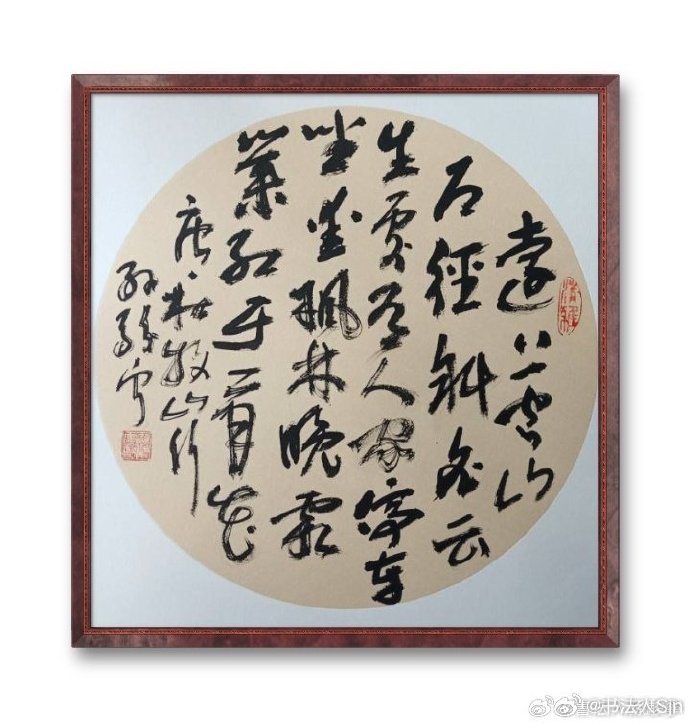 遠上寒山
石徑斜白云
生處有人家停车
坐爱楓林晚霜
葉红于二月花
唐杜牧山行
@书法人